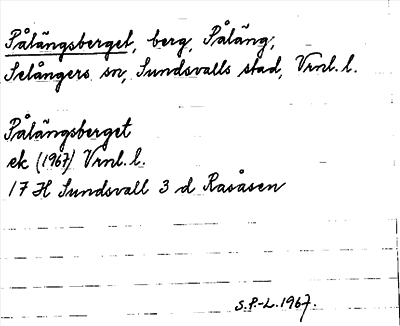 Pålängsberget, berg, Påläng,
Selångers sn, Sundsvalls stad, Vrnl. l.
Pålängsberget
ek (1967) Vrnl. l.
17 H Sundsvall 3 d Rasåsen
S.P.-L. 1967.